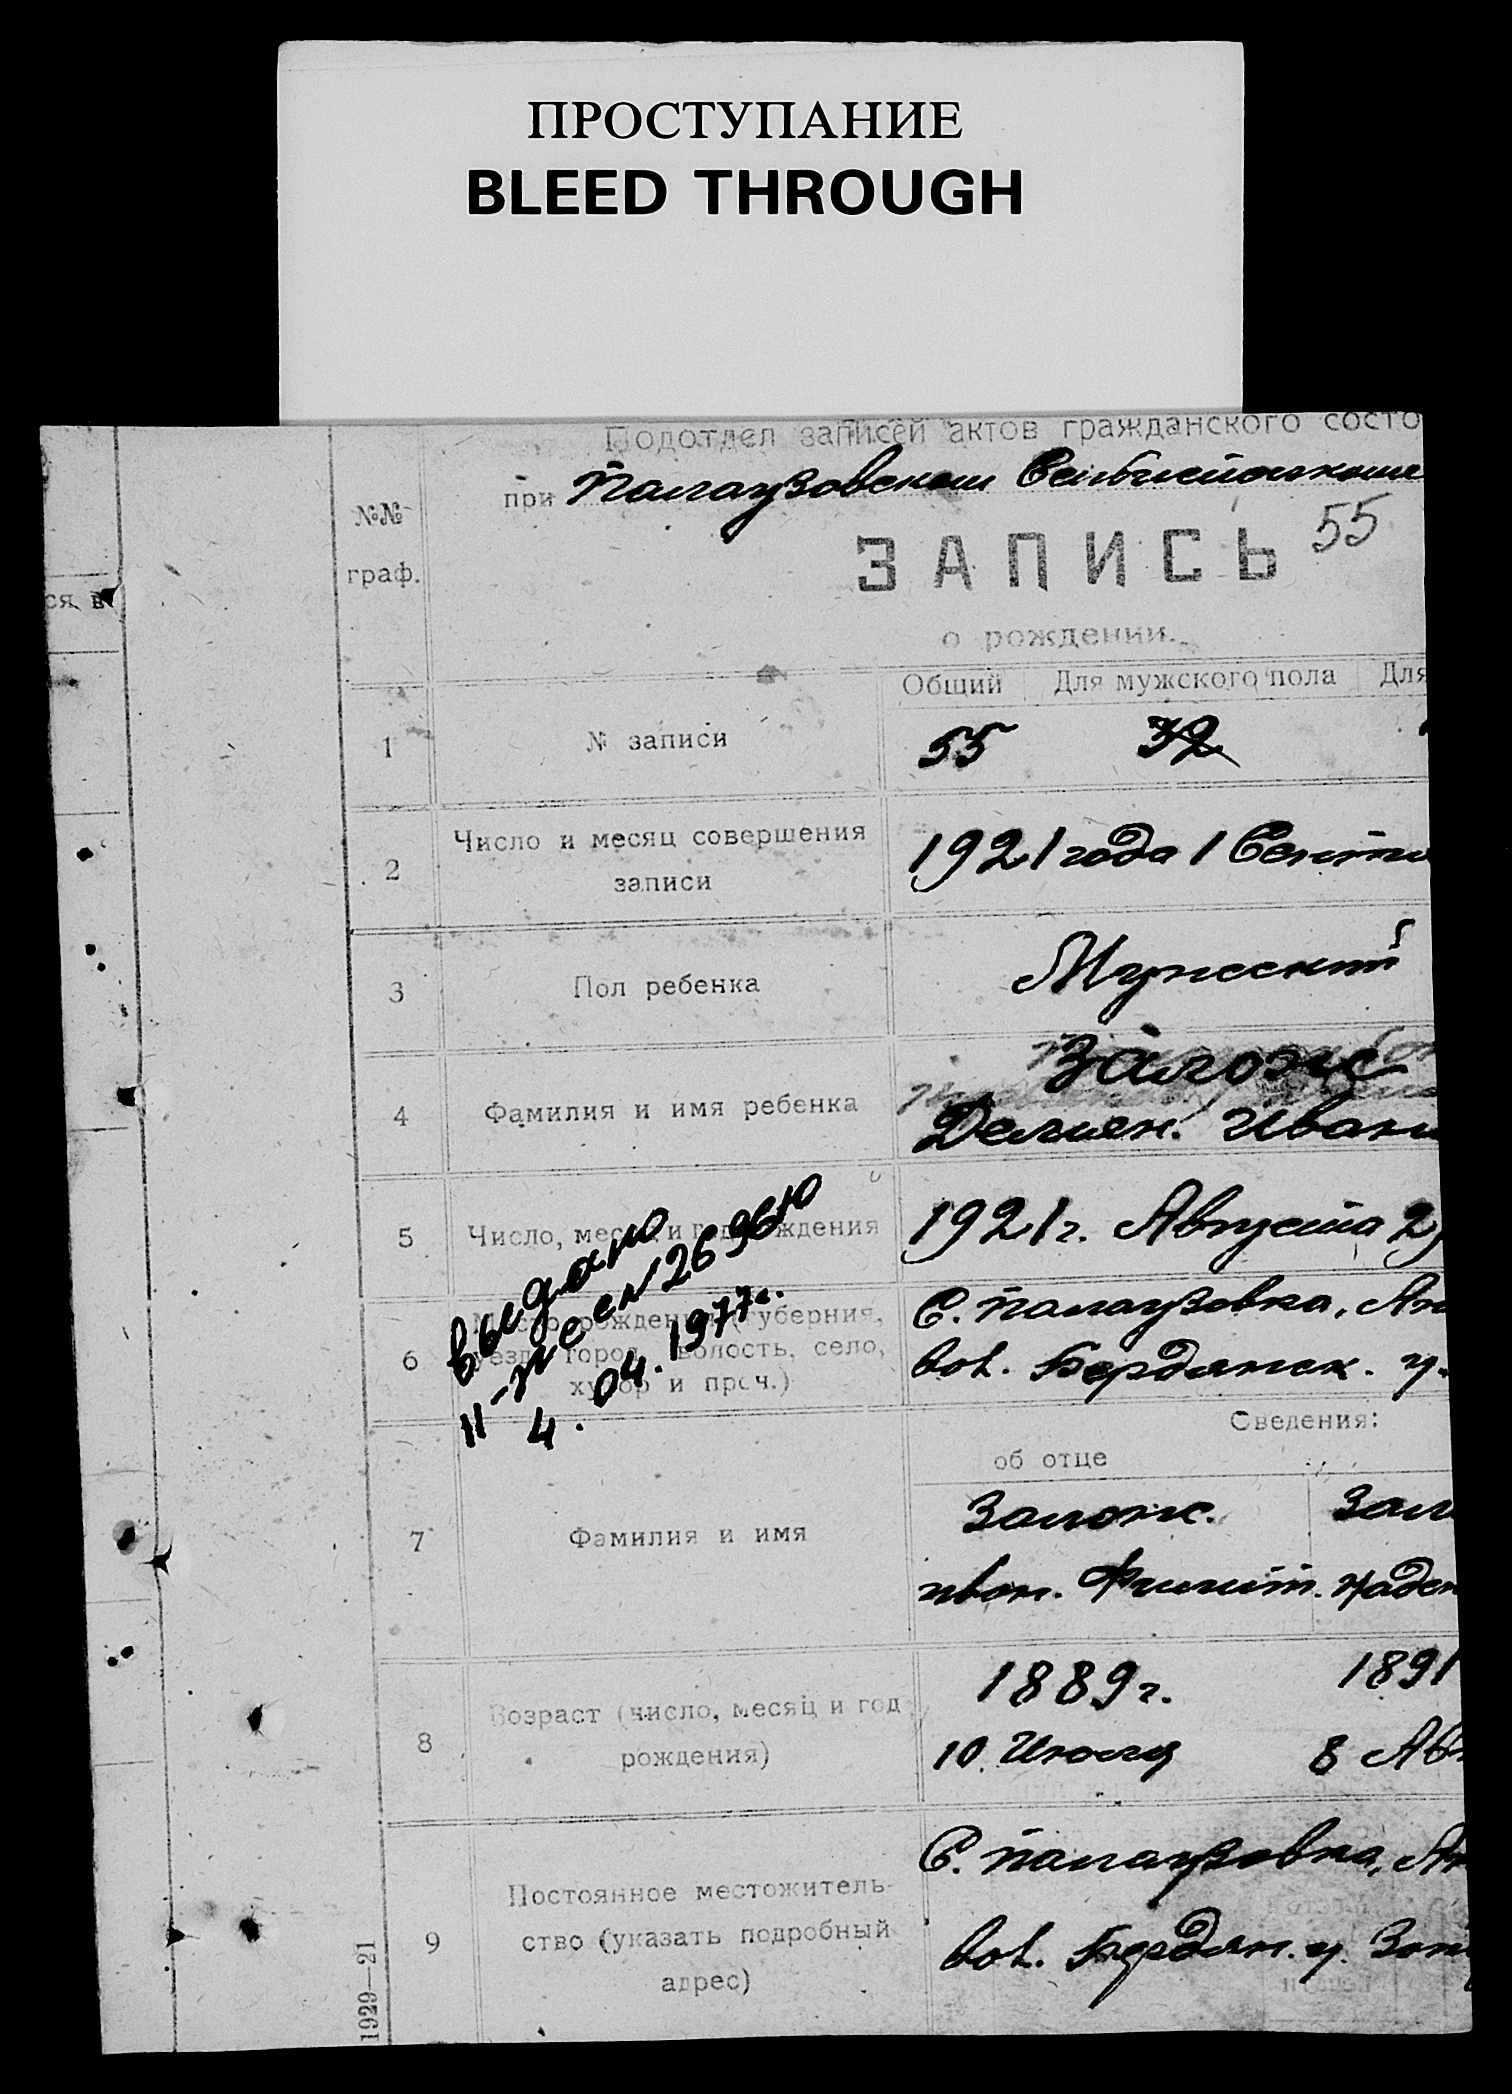 ПРОСТУПАНИЕ
BLEED THROUGH
Подотдел записей актов гражданского состо
при Палаузовском
№№
граф.
ЗАПИСЬ 55
о рождении.
ся в
Общий Для мужского пола Для
1 № записи 55 32
2 Число и месяц совершения
записи
1921 года 1 Сентя
3 Пол ребенка Мужеский
4 Фамилия и имя ребенка
Залож
Демьян. Иван
5 Число, месяц и год рождения 1921 г. Августа 2
6 Место рождения (губерния,
уезд, город, волость, село,
хутор и проч.)
С. Палаузовка, Ан
вол. Бердянск. у.
выдано
II-жс № 26
4.04.1977г.
Сведения:
об отце
7 Фамилия и имя
Залож. Зал
Иван. Филип.
8 Возраст (число, месяц и год
рождения)
1889 г. 1891
10. Июля 8 Ав
9 Постоянное местожитель-
ство (указать подробный
адрес)
С. Палаузовка, Ан
вол. Бердян. у. Зап
1929—21